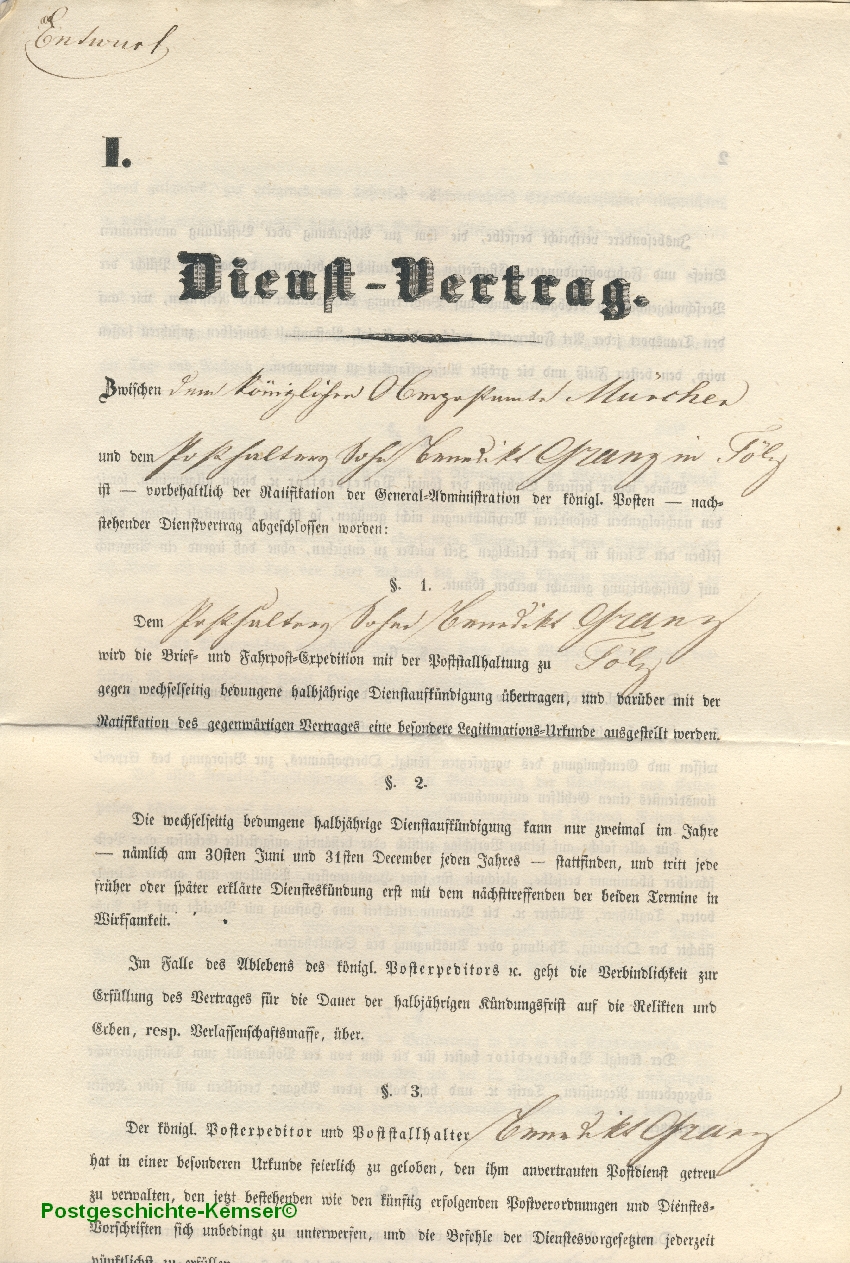 Entwurf
I.
Dienst-Vertrag.
Zwischen dem königlichen Oberpostamte München
und dem Posthalters Sohn Benedikt Granz in Tölz
ist — vorbehaltlich der Ratifikation der General-Administration der königl. Posten — nach-
stehender Dienstvertrag abgeschlossen worden:
§. 1.
Dem Posthalters Sohne Benedikt Granz
wird die Brief- und Fahrpost-Expedition mit der Poststallhaltung zu Tölz
gegen wechselseitig bedungene halbjährige Dienstaufkündigung übertragen, und darüber mit der
Ratifikation des gegenwärtigen Vertrages eine besondere Legitimations-Urkunde ausgestellt werden.
§. 2.
Die wechselseitig bedungene halbjährige Dienstaufkündigung kann nur zweimal im Jahre
— nämlich am 30sten Juni und 31sten December jeden Jahres — stattfinden, und tritt jede
früher oder später erklärte Diensteskündung erst mit dem nächsttreffenden der beiden Termine in
Wirksamkeit.
Im Falle des Ablebens des königl. Postexpeditors ꝛc. geht die Verbindlichkeit zur
Erfüllung des Vertrages für die Dauer der halbjährigen Kündungsfrist auf die Relikten und
Erben, resp. Verlassenschaftsmasse, über.
§. 3.
Der königl. Postexpeditor und Poststallhalter Benedikt Granz
hat in einer besonderen Urkunde feierlich zu geloben, den ihm anvertrauten Postdienst getreu
zu verwalten, den jetzt bestehenden wie den künftig erfolgenden Postverordnungen und Dienstes-
Vorschriften sich unbedingt zu unterwerfen, und die Befehle der Dienstesvorgesetzten jederzeit
pünktlichst zu erfüllen.
Postgeschichte-Kemser©